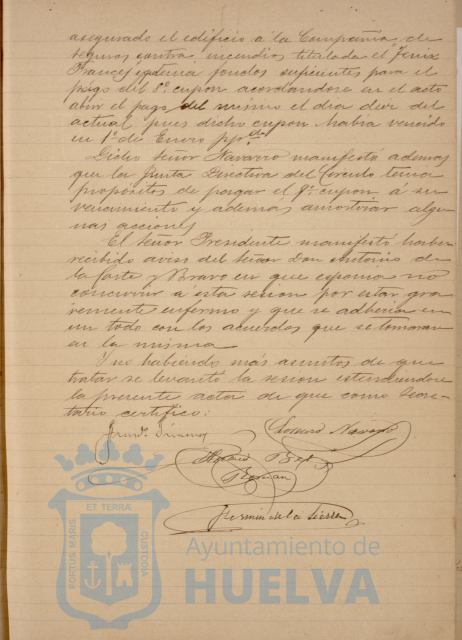 asegurado el edificio á la Compañia de
seguros contra incendios titulada el Fenix
Francés y demia fondos suficientes para el
pago del 8º cupon acordandose en el acto
abrir el pago del mismo el dia diez del
actual pues dicho cupon habia vencido
en 1º de Enero ppdo
Dicho Señor Navarro manifestó ademas
que la Junta Directiva del Circulo tenia
propósitos de pagar el 9º cupon á su
vencimiento y además amortizar algu-
nas acciones
El Señor Presidente manifestó haber
recibido aviso del Señor Don Antonio de
la Corte y Bravo en que exponia no
concurrir á esta sesion por estar gra-
vemente enfermo y que se adheria en
un todo con los acuerdos que se tomaran
en la misma
Y no habiendo más asuntos de que
tratar se levantó la sesion estendiendose
la presente acta de que como Secre-
tario certifico:
Navarro
Fermin de la Sierra
ET TERRÆ
PORTUS MARIS
CUSTODIA
Ayuntamiento de
HUELVA